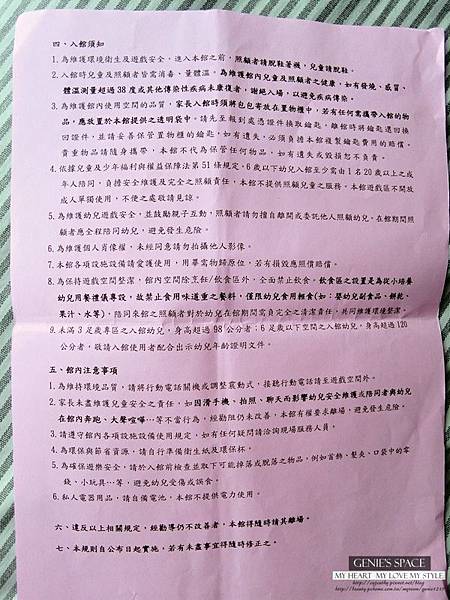 四、入館須知
1.為維護環境衛生及遊戲安全,進入本館之前,照顧者請脫鞋著襪,兒童請脫鞋。
2.入館時兒童及照顧者皆需消毒、量體溫,為維護館內兒童及照顧者之健康,如有發燒、感冒、
體溫測量超過 38 度或其他傳染性疾病未康復者,謝絕入場,以避免疾病傳染。
3.為維護館內使用空間的品質,家長入館時須將包包寄放在置物櫃中,若有任何需攜帶入館的物
品,應放置於本館提供之透明袋中。請先至報到處憑證件換取鑰匙,離館時將鑰匙還回換
回證件,並請妥善保管置物櫃的鑰匙,如有遺失,必須負擔本館複製鑰匙費用的賠償。
貴重物品請隨身攜帶,本館不代為保管任何物品,如有遺失或毀損恕不負責。
4.依據兒童及少年福利與權益保障法第 51 條規定,6 歲以下幼兒入館至少需由 1 名 20 歲以上之成
年人陪同,負擔安全維護及完全之照顧責任,本館不提供照顧兒童之服務。本館遊戲區不開放
成人單獨使用,不便之處敬請見諒。
5.為維護幼兒遊戲安全,並鼓勵親子互動,照顧者請勿擅自離開或委託他人照顧幼兒,在館期間照
顧者應全程陪同幼兒,避免發生危險。
6.為維護個人肖像權,未經同意請勿拍攝他人影像。
7.本館各項設施設備請愛護使用,用畢需物歸原位,若有損毀應照價賠償。
8.為保持遊戲空間整潔,館內空間除烹飪/飲食區外,全面禁止飲食。飲食區之設置是為從小培養
幼兒用餐禮儀專設,故禁止食用味道重之餐料,僅限幼兒食用輕食(如:嬰幼兒副食品、餅乾、
果汁、水等),陪同來館之照顧者對於幼兒在館期間需負完全之清潔責任,共同維護環境整潔。
9.未滿 3 足歲專區之入館幼兒,身高超過 98 公分者;6 足歲以下空間之入館幼兒,身高超過 120
公分者,敬請入館使用者配合出示幼兒年齡證明文件。
五、館內注意事項
1.為維持環境品質,請將行動電話關機或調整震動式,接聽行動電話請至遊戲空間外。
2.家長未盡維護兒童安全之責任,如因滑手機、拍照、聊天而影響幼兒安全維護或陪同者與幼兒
在館內奔跑、大聲喧嘩…等不當行為,經勸阻仍未改善,本館有權要求離場,避免發生危險。
3.請遵守館內各項設施設備使用規定,如有任何疑問請洽詢現場服務人員。
4.為環保與節省資源,請自行準備衛生紙及環保杯。
5.為確保遊樂安全,請於入館前檢查並取下可能掉落或脫落之物品,例如首飾、髮夾、口袋中的零
錢、小玩具…等,避免幼兒受傷或誤食。
6.私人電器用品,請自備電池,本館不提供電力使用。
六、違反以上相關規定,經勸導仍不改善者,本館得隨時請其離場。
七、本規則自公布日起實施,若有未盡事宜得隨時修正之。
GENIE'S SPACE
MY HEART MY LOVE MY STYLE